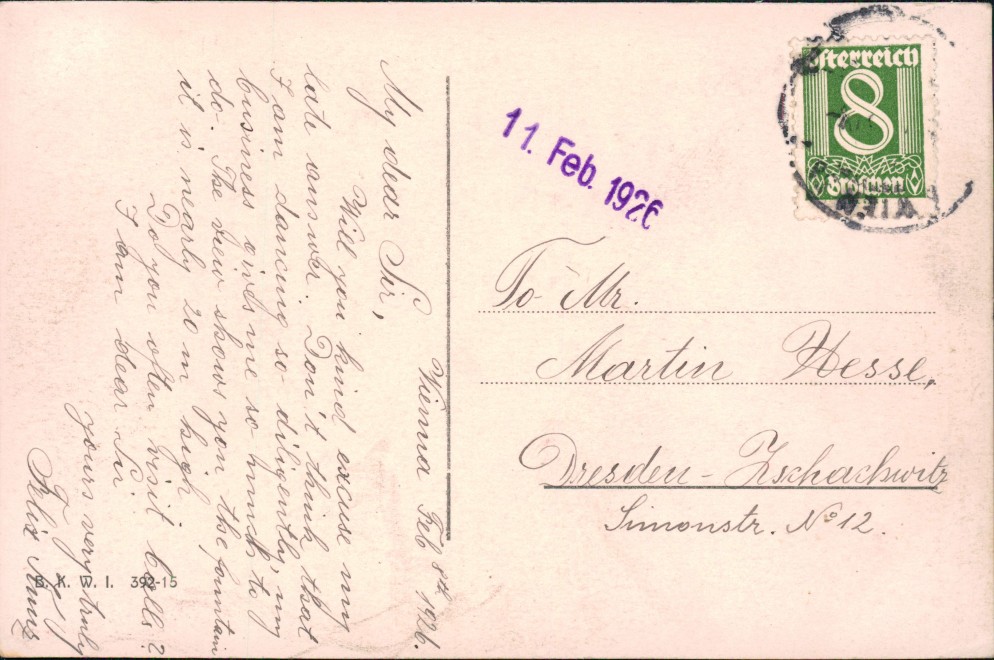 Vienna Feb 8th 1926.
My dear Sir,
Will you kind excuse my
late answer. Don't think that
I am dancing so diligently, my
business gives me so much to
do. The view shows you the fountain
it is nearly 20 m high.
Do you often visit balls?
I am dear Sir.
yours very truly
Felix
B. K. W. I. 392-15
11. Feb. 1926
Österreich
8
Groschen
WIEN
To Mr.
Martin Hesse,
Dresden-Zschachwitz
Simonstr. No 12.